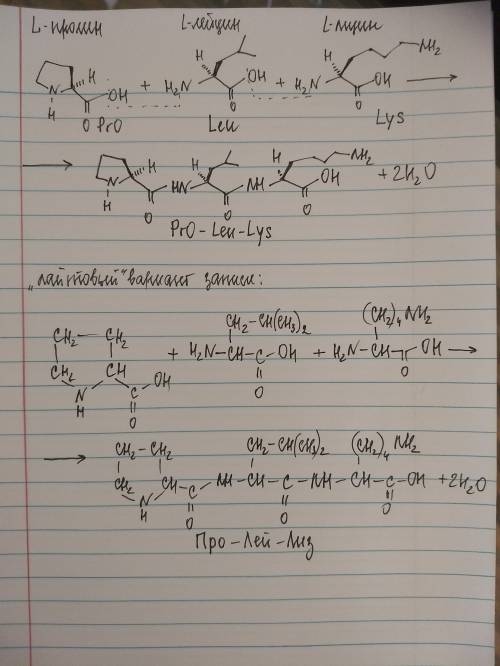 L-пролин L-лейцин L-лизин
H NH2
N H OH + H2N OH + H2N OH ⟶
H O O O
PrO Leu Lys
⟶ H H H NH2
N HN NH OH + 2H2O
H O O O
PrO-Leu-Lys
„лайтовый" вариант записи:
CH2-CH(CH3)2 (CH2)4 NH2
CH2-CH2 + H2N-CH-C-OH + H2N-CH-C-OH ⟶
CH2 CH OH O O
N C
H O
⟶ CH2-CH2 CH2-CH(CH3)2 (CH2)4 NH2
CH2 CH-C-NH-CH-C-NH-CH-C-OH +2H2O
N O O O
H
Про-Лей-Лиз